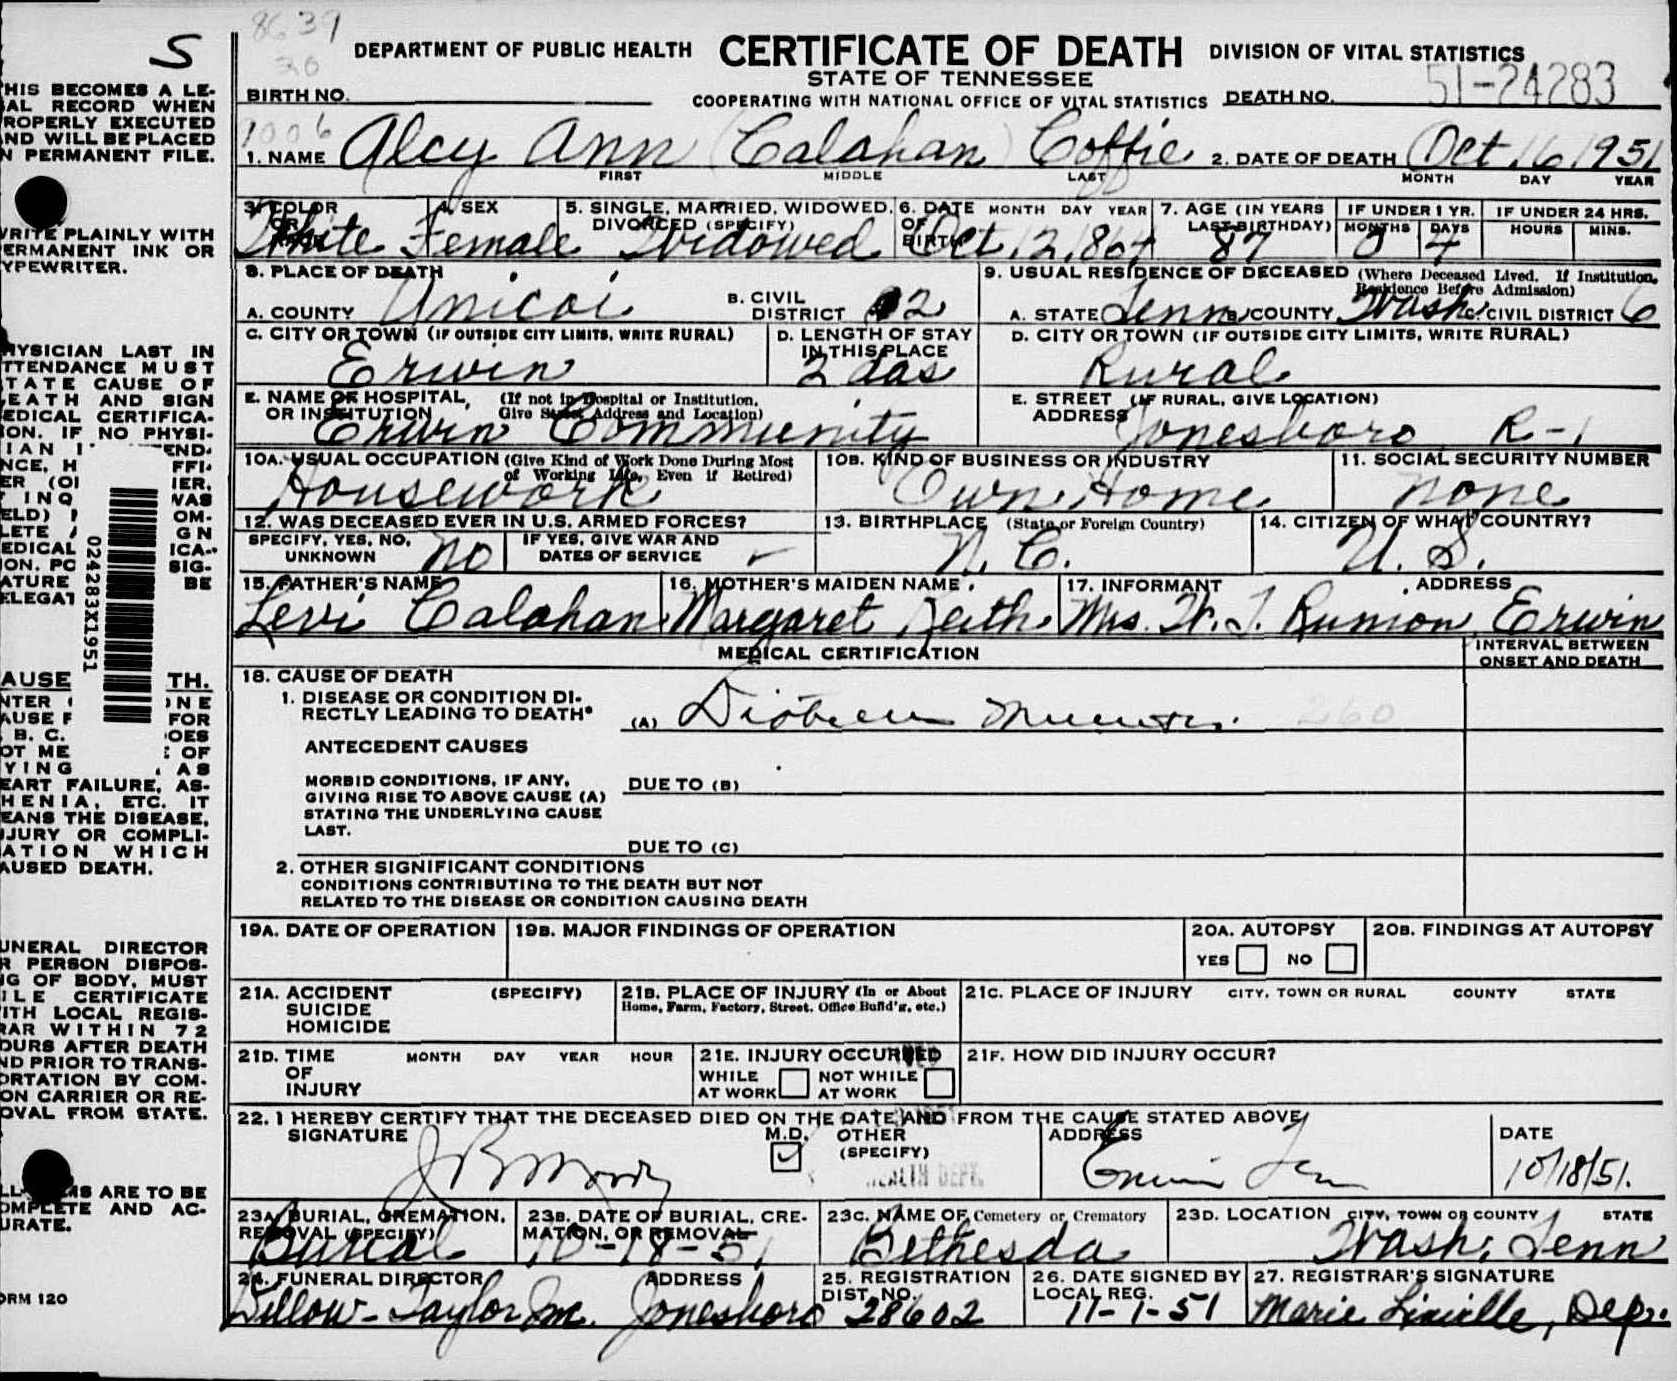 8639
20
S
DEPARTMENT OF PUBLIC HEALTH CERTIFICATE OF DEATH DIVISION OF VITAL STATISTICS
STATE OF TENNESSEE
BIRTH NO. COOPERATING WITH NATIONAL OFFICE OF VITAL STATISTICS DEATH NO. 51-24283
1. NAME Alcy Ann (Calahan) Coffie 2. DATE OF DEATH Oct 16 1951
FIRST MIDDLE LAST MONTH DAY YEAR
3. COLOR OR White 4. SEX Female 5. SINGLE, MARRIED, WIDOWED, DIVORCED (SPECIFY) Widowed 6. DATE OF BIRTH MONTH DAY YEAR Oct. 12, 1864 7. AGE (IN YEARS LAST BIRTHDAY) 87 IF UNDER 1 YR. MONTHS 0 DAYS 4 IF UNDER 24 HRS. HOURS MINS.
8. PLACE OF DEATH 9. USUAL RESIDENCE OF DECEASED (Where Deceased Lived. If Institution, Residence Before Admission)
A. COUNTY Unicoi B. CIVIL DISTRICT 2 A. STATE Tenn B. COUNTY Wash. C. CIVIL DISTRICT 6
C. CITY OR TOWN (IF OUTSIDE CITY LIMITS, WRITE RURAL) D. LENGTH OF STAY IN THIS PLACE D. CITY OR TOWN (IF OUTSIDE CITY LIMITS, WRITE RURAL)
Erwin 2 das Rural
E. NAME OF HOSPITAL, OR INSTITUTION (If not in Hospital or Institution, Give Street Address and Location) E. STREET ADDRESS (IF RURAL, GIVE LOCATION)
Erwin Community Jonesboro R-1
10A. USUAL OCCUPATION (Give Kind of Work Done During Most of Working Life, Even if Retired) 10B. KIND OF BUSINESS OR INDUSTRY 11. SOCIAL SECURITY NUMBER
Housework Own Home none
12. WAS DECEASED EVER IN U.S. ARMED FORCES? 13. BIRTHPLACE (State or Foreign Country) 14. CITIZEN OF WHAT COUNTRY?
SPECIFY, YES, NO, UNKNOWN no IF YES, GIVE WAR AND DATES OF SERVICE - N. C. U. S.
15. FATHER'S NAME 16. MOTHER'S MAIDEN NAME 17. INFORMANT ADDRESS
Levi Calahan Margaret Keith Mrs. W. T. Runion, Erwin
MEDICAL CERTIFICATION INTERVAL BETWEEN ONSET AND DEATH
18. CAUSE OF DEATH
1. DISEASE OR CONDITION DIRECTLY LEADING TO DEATH* (A) 260
ANTECEDENT CAUSES
MORBID CONDITIONS, IF ANY, GIVING RISE TO ABOVE CAUSE (A) STATING THE UNDERLYING CAUSE LAST. DUE TO (B)
DUE TO (C)
2. OTHER SIGNIFICANT CONDITIONS
CONDITIONS CONTRIBUTING TO THE DEATH BUT NOT
RELATED TO THE DISEASE OR CONDITION CAUSING DEATH
19A. DATE OF OPERATION 19B. MAJOR FINDINGS OF OPERATION 20A. AUTOPSY YES NO 20B. FINDINGS AT AUTOPSY
21A. ACCIDENT SUICIDE HOMICIDE (SPECIFY) 21B. PLACE OF INJURY (In or About Home, Farm, Factory, Street, Office Build'g, etc.) 21C. PLACE OF INJURY CITY, TOWN OR RURAL COUNTY STATE
21D. TIME OF INJURY MONTH DAY YEAR HOUR 21E. INJURY OCCURRED WHILE AT WORK NOT WHILE AT WORK 21F. HOW DID INJURY OCCUR?
22. I HEREBY CERTIFY THAT THE DECEASED DIED ON THE DATE AND FROM THE CAUSE STATED ABOVE
SIGNATURE M.D. OTHER (SPECIFY) ADDRESS DATE
Erwin 10/18/51.
HEALTH DEPT.
23A. BURIAL, CREMATION, REMOVAL (SPECIFY) 23B. DATE OF BURIAL, CREMATION, OR REMOVAL 23C. NAME OF Cemetery or Crematory 23D. LOCATION CITY, TOWN OR COUNTY STATE
Burial 10-18-51 Bethesda Wash. Tenn
24. FUNERAL DIRECTOR ADDRESS 25. REGISTRATION DIST. NO. 26. DATE SIGNED BY LOCAL REG. 27. REGISTRAR'S SIGNATURE
Dillow-Taylor Jonesboro 28602 11-1-51 Marie Linville, Dep.
HIS BECOMES A LE-
AL RECORD WHEN
ROPERLY EXECUTED
ND WILL BE PLACED
N PERMANENT FILE.
RITE PLAINLY WITH
ERMANENT INK OR
YPEWRITER.
HYSICIAN LAST IN
TTENDANCE MUST
TATE CAUSE OF
EATH AND SIGN
EDICAL CERTIFICA-
ON. IF NO PHYSI-
024283X1951
AUSE TH.
EART FAILURE, AS-
HENIA, ETC. IT
EANS THE DISEASE,
JURY OR COMPLI-
ATION WHICH
AUSED DEATH.
UNERAL DIRECTOR
R PERSON DISPOS-
G OF BODY, MUST
ILE CERTIFICATE
ITH LOCAL REGIS-
RAR WITHIN 72
OURS AFTER DEATH
ND PRIOR TO TRANS-
ORTATION BY COM-
ON CARRIER OR RE-
OVAL FROM STATE.
MS ARE TO BE
OMPLETE AND AC-
URATE.
ORM 120